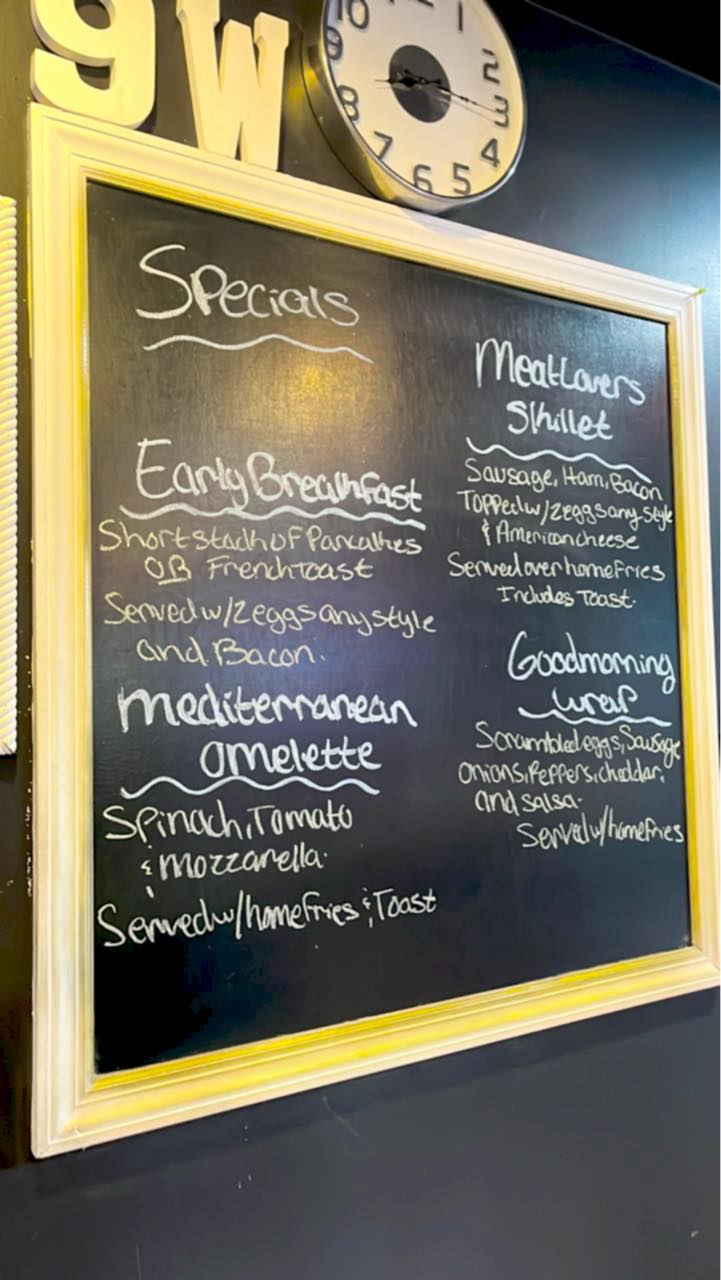 9W
10 1
9 2
8 3
7 6 5 4
Specials
Early Breakfast
Short stack of Pancakes
OR French toast
Served w/ 2 eggs any style
and Bacon.
mediterranean
omelette
Spinach, Tomato
& Mozzarella
Served w/ home fries & Toast
Meat Lovers
Skillet
Sausage, Ham, Bacon
Topped w/ 2 eggs any style
& American cheese
Served over home fries
Includes Toast.
Good morning
wrap
Scrambled eggs, Sausage
onions, Peppers, cheddar,
and salsa.
Served w/ home fries